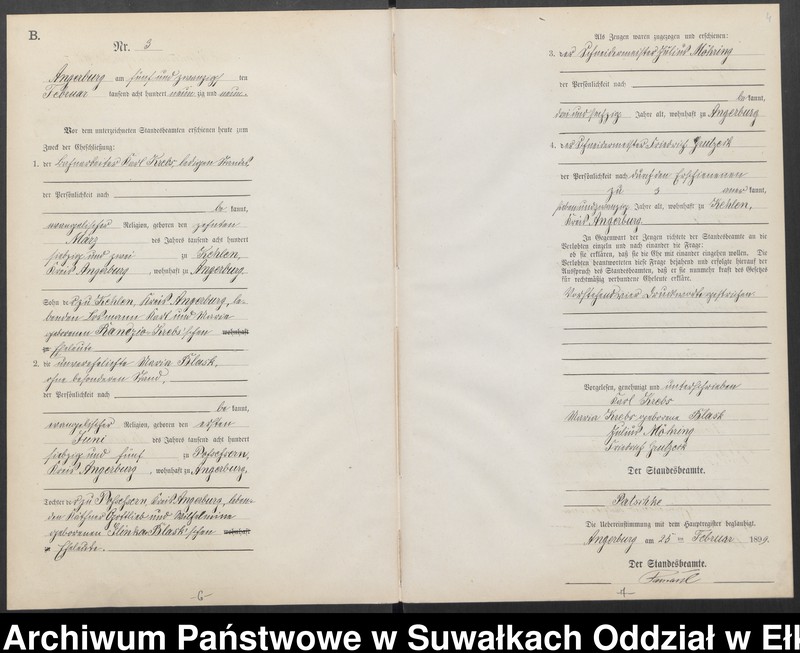 B.
Nr. 3
Angerburg am fünf und zwanzigsten
Februar tausend acht hundert neunzig und neun.
Vor dem unterzeichneten Standesbeamten erschienen heute zum
Zweck der Eheschließung:
1. der Karl Krebs, ledigen Standes
der Persönlichkeit nach
be kannt,
evangelischer Religion, geboren den zehnten
März des Jahres tausend acht hundert
siebzig und zwei zu Kehlen,
Kreis Angerburg, wohnhaft zu Angerburg
Sohn der zu Kehlen, Kreis Angerburg, le-
benden Losmann Karl und Maria
geborenen Krebs'schen wohnhaft
zu Eheleute
2. die unverehelichte Maria Blask,
ohne besonderen Stand,
der Persönlichkeit nach
be kannt,
evangelischer Religion, geboren den ersten
Juni des Jahres tausend acht hundert
siebzig und fünf zu
Kreis Angerburg, wohnhaft zu Angerburg,
Tochter der zu Kreis Angerburg, leben-
den Käthner Gottlieb und Wilhelmine
geborenen Blask'schen wohnhaft
zu Eheleute.
-6-
Als Zeugen waren zugezogen und erschienen:
3. der Schneidermeister Julius Möhring
der Persönlichkeit nach
be kannt,
drei und fünfzig Jahre alt, wohnhaft zu Angerburg
4. der Schneidermeister Friedrich
der Persönlichkeit nach durch den Erschienenen
zu 3 aner kannt,
sieben und zwanzig Jahre alt, wohnhaft zu Kehlen,
Kreis Angerburg.
In Gegenwart der Zeugen richtete der Standesbeamte an die
Verlobten einzeln und nach einander die Frage:
ob sie erklären, daß sie die Ehe mit einander eingehen wollen. Die
Verlobten beantworteten diese Frage bejahend und erfolgte hierauf der
Ausspruch des Standesbeamten, daß er sie nunmehr kraft des Gesetzes
für rechtmäßig verbundene Eheleute erkläre.
Vorstehend vier Druckworte gestrichen
Vorgelesen, genehmigt und unterschrieben
Karl Krebs
Maria Krebs geborene Blask
Julius Möhring
Friedrich
Der Standesbeamte.
Die Uebereinstimmung mit dem Hauptregister beglaubigt.
Angerburg am 25 ten Februar 1899.
Der Standesbeamte.
Archiwum Państwowe w Suwałkach Oddział w Ełk